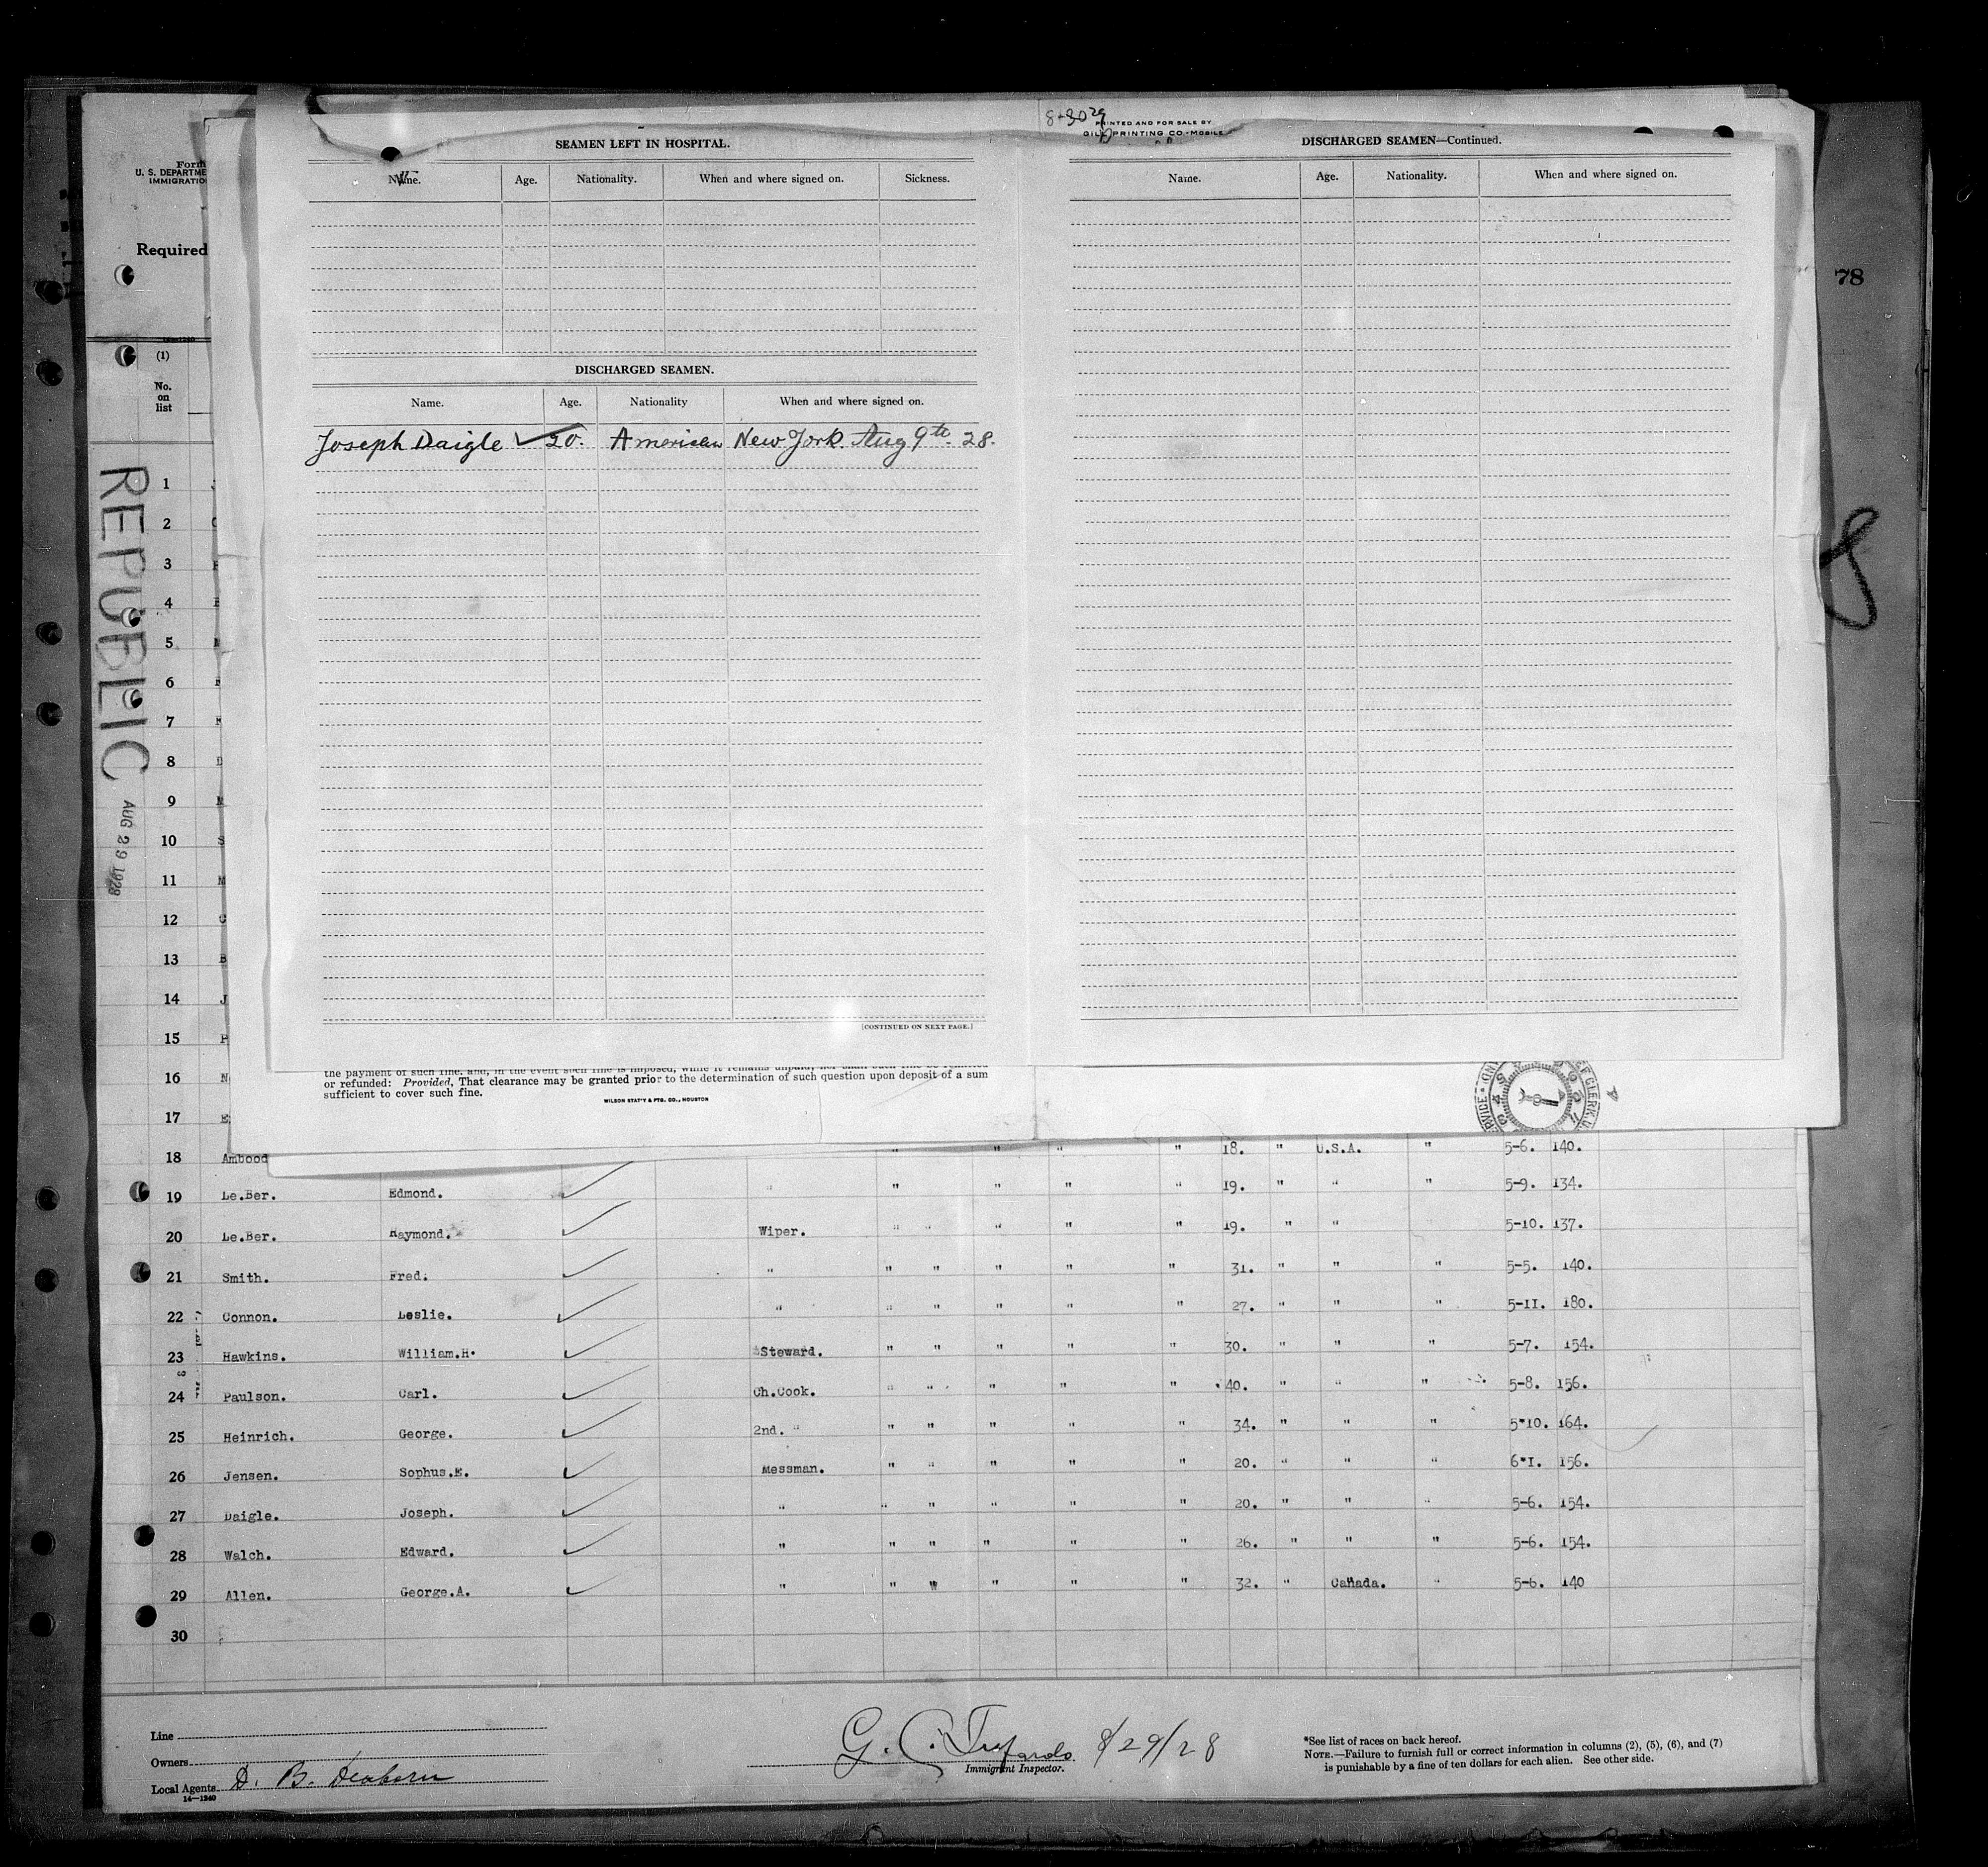 8-30 29
PRINTED AND FOR SALE BY
GILL PRINTING CO.-MOBILE
SEAMEN LEFT IN HOSPITAL.
Name. Age. Nationality. When and where signed on. Sickness.
DISCHARGED SEAMEN.
Name. Age. Nationality When and where signed on.
Joseph Daigle 20. American New York Aug 9th 28.
[CONTINUED ON NEXT PAGE.]
DISCHARGED SEAMEN—Continued.
Name. Age. Nationality. When and where signed on.
78
Form
U. S. DEPARTME
IMMIGRATIO
Required
14-1240
(1)
No.
on
list
REPUBLIC
AUG 29 1928
1
2
3
4
5
6
7
8
9
10
11
12
13
14
15
16
17
the payment of such fine, and, in the event such fine is imposed, while it remains unpaid, nor shall such fine be remitted
or refunded: Provided, That clearance may be granted prior to the determination of such question upon deposit of a sum
sufficient to cover such fine.
WILSON STAT'Y & PTG. CO., HOUSTON
18 Ambood " " " " 18. " U.S.A. " 5-6. 140.
19 Le.Ber. Edmond. " " " " " 19. " " " 5-9. 134.
20 Le.Ber. Raymond. Wiper. " " " " " 19. " " " 5-10. 137.
21 Smith. Fred. " " " " " " 31. " " " 5-5. 140.
22 Connon. Leslie. " " " " " " 27. " " " 5-II. 180.
23 Hawkins. William.H. Steward. " " " " " 30. " " " 5-7. 154.
24 Paulson. Carl. Ch.Cook. " " " " " 40. " " " 5-8. 156.
25 Heinrich. George. 2nd. " " " " " " 34. " " " 5"10. 164.
26 Jensen. Sophus.E. Messman. " " " " " 20. " " " 6"I. 156.
27 Daigle. Joseph. " " " " " " 20. " " " 5-6. 154.
28 Walch. Edward. " " " " " " 26. " " " 5-6. 154.
29 Allen. George.A. " " W " " " 32. " Canada. " 5-6. 140
30
Line
Owners
Local Agents D. B. Dearborn
14-1240
G. C. 8/29/28
Immigrant Inspector.
*See list of races on back hereof.
NOTE.—Failure to furnish full or correct information in columns (2), (5), (6), and (7)
is punishable by a fine of ten dollars for each alien. See other side.